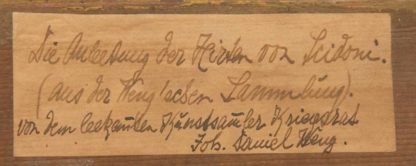 Die Anbetung der Hirten von Scidoni.
(aus der Heng'schen Sammlung).
von dem bekannten Kunstsamler Kriegsrat
Joh. Daniel Heng.